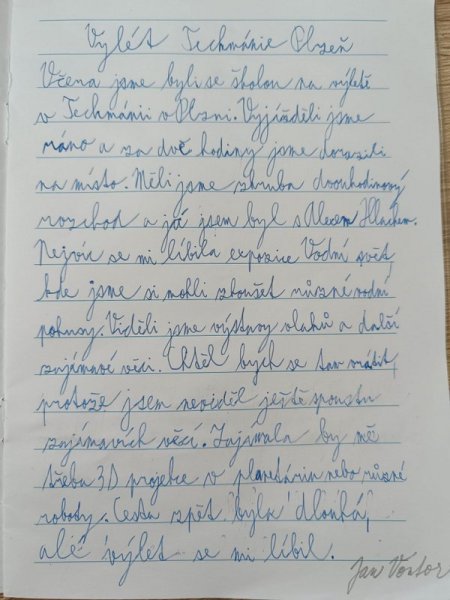 Výlét Techmánie Plzeň
Včera jsme byli se školou na výletě
v Techmánii v Plzni. Vyjížděli jsme
ráno a za dvě hodiny jsme dorazili
na místo. Měli jsme zhruba dvouhodinový
rozchod a já jsem byl s Alexem
Nejvíc se mi líbila expozice Vodní svět
kde jsme si mohli zkoušet různé vodní
pokusy. Viděli jsme výstavy vlaků a další
zajímavé věci. Chtěl bych se tam vrátit,
protože jsem neviděl ještě spoustu
zajímavích věcí. Zajímala by mě
třeba 3D projekce v planetáriu nebo různé
roboty. Cesta zpět byla dlouhá,
alé výlet se mi líbil.
Jan